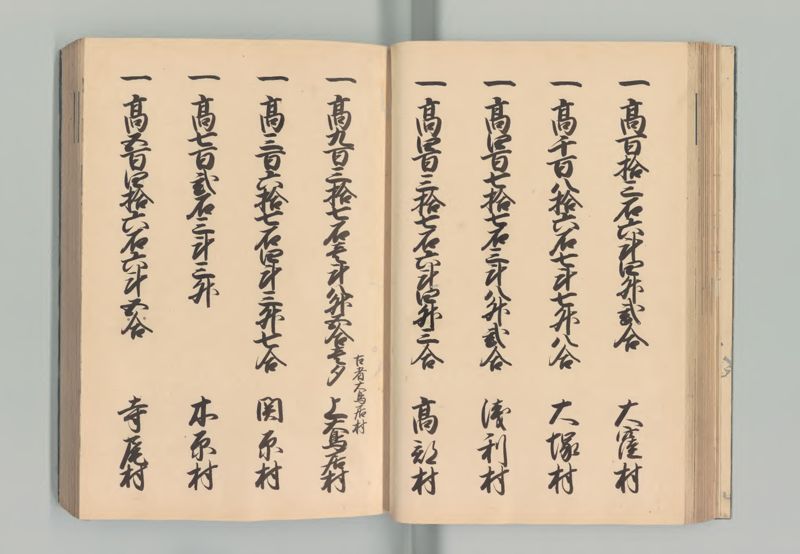 一高百拾二石六斗四升弐合　大窪村
一高千百八拾六石七斗七升八合　大塚村
一高四百七拾七石三斗八升弐合　浅利村
一高四百三拾七石六斗四升二合　高部村
一高九百三拾七石壱斗八升五合壱夕　上大鳥居村
古者大鳥居村
一高三百六拾七石四斗三升七合　関原村
一高七百弐石三斗三升　木原村
一高五百四拾六石六斗五合　寺尾村